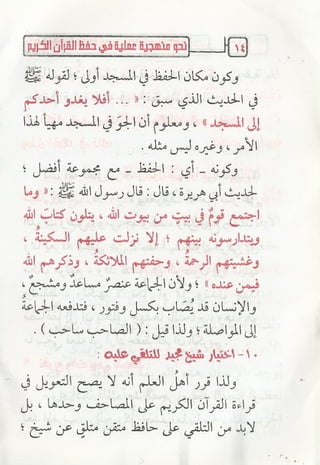 ١٤ نحو منهجية عملية في حفظ القرآن الكريم
وكون مكان الحفظ في المسجد أولى ؛ لقوله ﷺ
في الحديث الذي سبق : « ... أفلا يغدو أحدكم
إلى المسجد » ، ومعلوم أن الجوّ في المسجد مهيأ لهذا
الأمر ، وغيره ليس مثله .
وكونه - أي : الحفظ - مع مجموعة أفضل ؛
لحديث أبي هريرة ، قال : قال رسول الله ﷺ : « وما
اجتمع قومٌ في بيتٍ من بيوت الله ، يتلون كتابَ الله
ويتدارسونه بينهم ؛ إلا نزلت عليهم السكينةُ ،
وغشيتهم الرحمةُ ، وحفتهم الملائكةُ ، وذكرهم الله
فيمن عنده » ؛ ولأن الجماعة عنصرٌ مساعدٌ ومشجعٌ ،
والإنسان قد يُصَاب بكسل وفتور ، فتدفعه الجماعةُ
إلى المواصلة ؛ ولذا قيل : ( الصاحب ساحب ) .
١٠- اختيار شيخ مجيد للتلقي عليه :
ولذا قرر أهلُ العلم أنه لا يصح التعويل في
قراءة القرآن الكريم على المصاحف وحدها ، بل
لابد من التلقي على حافظ متقن متلقٍ عن شيخ ؛